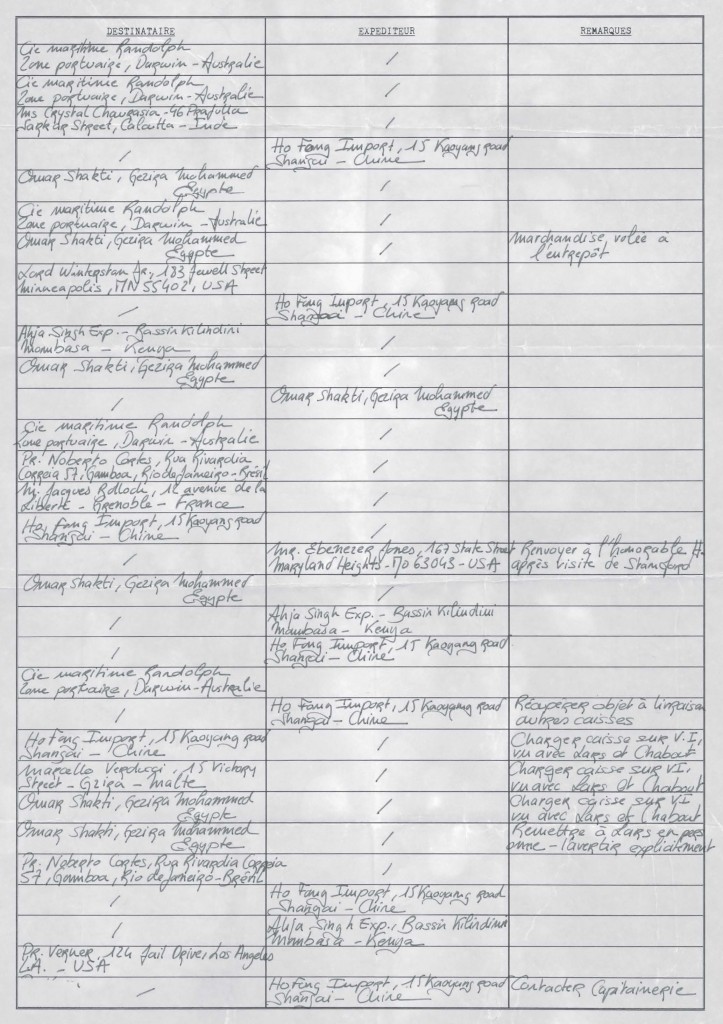 DESTINATAIRE EXPEDITEUR REMARQUES
Cie maritime Randolph
Zone portuaire, Darwin - Australie /
Cie maritime Randolph
Zone portuaire, Darwin - Australie /
Ms Crystal Chaurasia - 46 Prafulla
Sarkar Street, Calcutta - Inde /
/ Ho Fong Import, 15 Kaoyang road
Shangai - Chine
Omar Shakti, Gezira Mohammed
Egypte /
Cie maritime Randolph
Zone portuaire, Darwin - Australie /
Omar Shakti, Gezira Mohammed Marchandise volée à
Egypte / l'entrepôt
Lord Winterstan Jr, 183 Jewell Street
Minneapolis, MN 55402, USA
/ Ho Fong Import, 15 Kaoyang road
Shangai - Chine
Ahja Singh Exp. - Bassin Kilindini
Mombasa - Kenya /
Omar Shakti, Gezira Mohammed
Egypte /
/ Omar Shakti, Gezira Mohammed
Egypte
Cie maritime Randolph
Zone portuaire, Darwin - Australie /
Pr. Noberto Cortes, Rua Rivardia
Correia 57, Gamboa, Rio de Janeiro - Brésil /
M. Jacques 12 avenue de la
Liberté - Grenoble - France /
Ho Fong Import, 15 Kaoyang road
Shangai - Chine /
/ Mr. Ebenezer Jones, 167 State Street Renvoyer à l'honorable H.
Maryland Heights - Mo 63043 - USA après visite de Stamford
Omar Shakti, Gezira Mohammed
Egypte /
/ Ahja Singh Exp. - Bassin Kilindini
Mombasa - Kenya
/ Ho Fong Import, 15 Kaoyang road
Shangai - Chine
Cie maritime Randolph
Zone portuaire, Darwin - Australie /
/ Ho Fong Import, 15 Kaoyang road Récupérer objet à livraison
Shangai - Chine autres caisses
Ho Fong Import, 15 Kaoyang road Charger caisse sur V.I,
Shangai - Chine / vu avec Lars et Chabout
Marcello Verducci, 15 Victory Charger caisse sur VI,
Street - Gzira - Malte / vu avec Lars et Chabout
Omar Shakti, Gezira Mohammed Charger caisse sur VI
Egypte / vu avec Lars et Chabout
Omar Shakti, Gezira Mohammed Remettre à Lars en pers
Egypte / onne - l'avertir explicitement
Pr. Noberto Cortes, Rua Rivardia Correia
57, Gamboa, Rio de Janeiro - Brésil /
/ Ho Fong Import, 15 Kaoyang road
Shangai - Chine
/ Ahja Singh Exp., Bassin Kilindini
Mombasa - Kenya
Pr. Verner, 124 Jail Drive, Los Angeles
L.A. - USA
/ Ho Fong Import, 15 Kaoyang road Contacter Capitainerie
Shangai - Chine